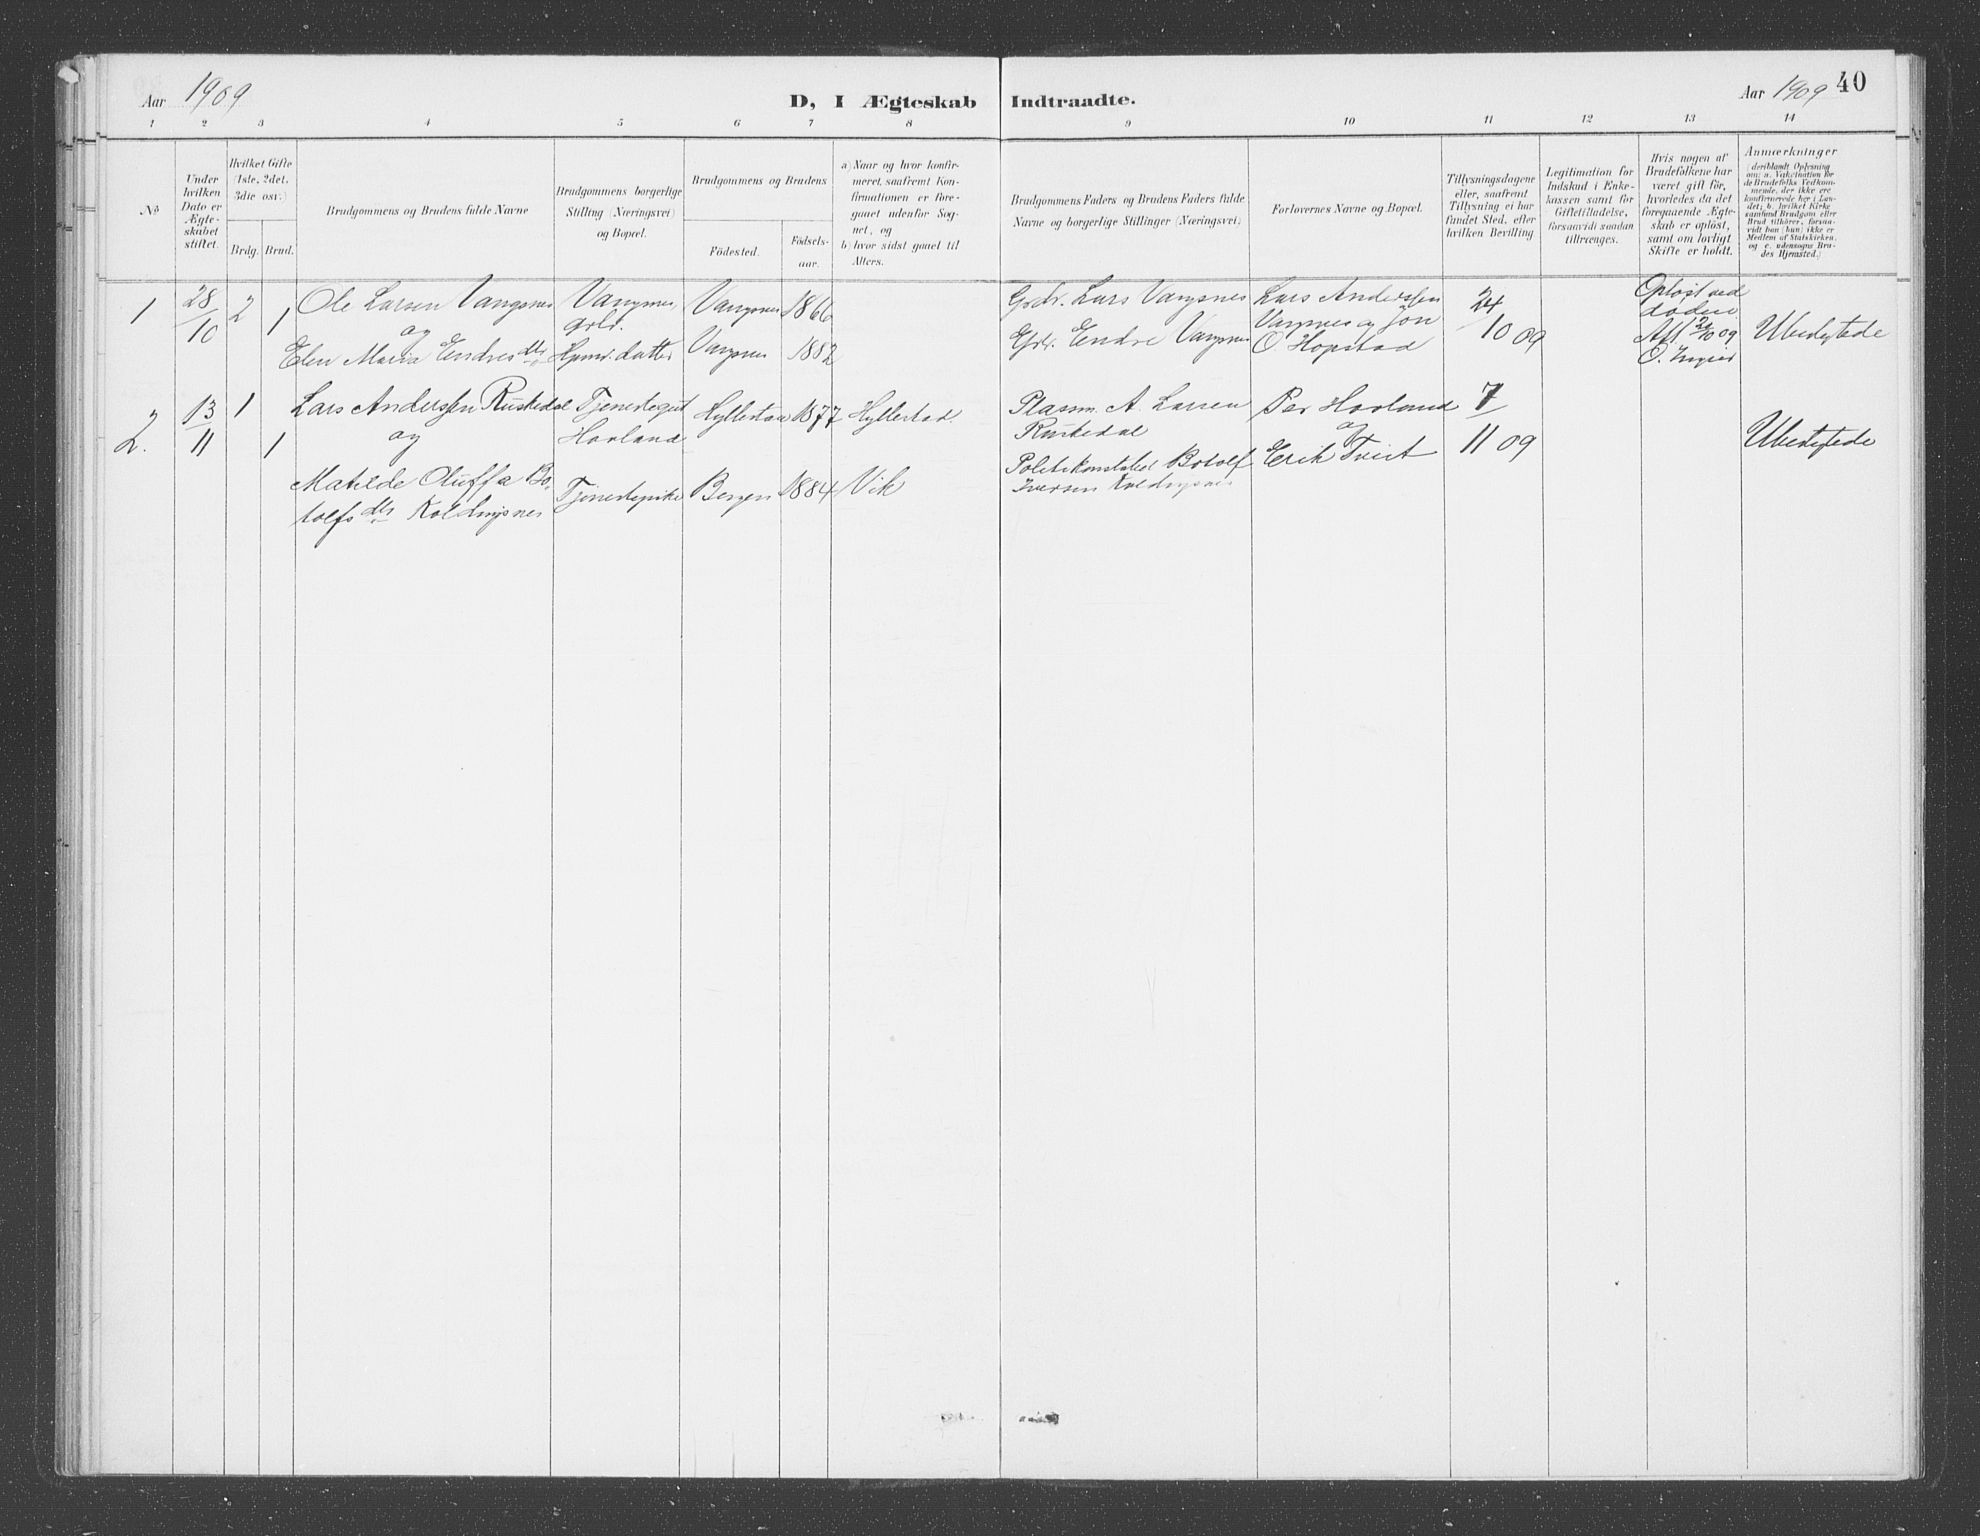 Aar 1909
D, I Ægteskab Indtraadte.
Aar 1909
40
1 2 3 4 5 6 7 8 9 10 11 12 13 14
No
Under hvilken Dato er Ægteskabet stiftet.
Hvilket Gifte (1ste, 2det, 3die osv.)
Brdg. Brud.
Brudgommens og Brudens fulde Navne
Brudgommens borgerlige Stilling (Næringsvei) og Bopæl.
Brudgommens og Brudens
Födested.
Födselsaar.
a) Naar og hvor konfirmeret, saafremt Konfirmationen er foregaaet udenfor Sognet, og
b) hvor sidst gaaet til Alters.
Brudgommens Faders og Brudens Faders fulde Navne og borgerlige Stillinger (Næringsvei)
Forlovernes Navne og Bopæl.
Tillysningsdagene eller, saafremt Tillysning ei har fundet Sted, efter hvilken Bevilling
Legitimation for Indskud i Enkekassen samt for Giftetilladelse, forsaavidt saadan tiltrænges.
Hvis nogen af Brudefolkene har været gift för, hvorledes da det foregaaende Ægteskab er oplöst, samt om lovligt Skifte er holdt.
Anmærkninger
(deriblandt Oplysning om: a. Vaksination for de Brudefolks Vedkommende, der ikke ere konfirmerede her i Landet; b. hvilket Kirkesamfund Brudgom eller Brud tilhörer, forsaavidt han (hun) ikke er Medlem af Statskirken, og c. udensogns Brudes Hjemsted.)
1 28/10 2 1 Ole Larsen Vangsnes Vangsnes Vangsnes 1866 Gbdr. Lars Vangsnes Lars Anderssen 24/10 09 Opløst ved
og gbr. Vangsnes og Jon døden
Elen Maria Endresdtr Gpmd. datter Vangsnes 1882 Gbr. Endre Vangsnes O Hopstad Ubeslegtede
2. 13/11 1 1 Lars Anderssen Ruskedal Tjenestegut Hyllestad 1877 Hyllestad Plassm. A. Larsen Per Hovland 7/11 09
og Hovland Ruskedal og Ubeslegtede
Matilde Oluffa Bo- Tjenestepike Bergen 1884 Vik Politikonstabel Botolf Erik Tveit
tolfsdtr Iversen